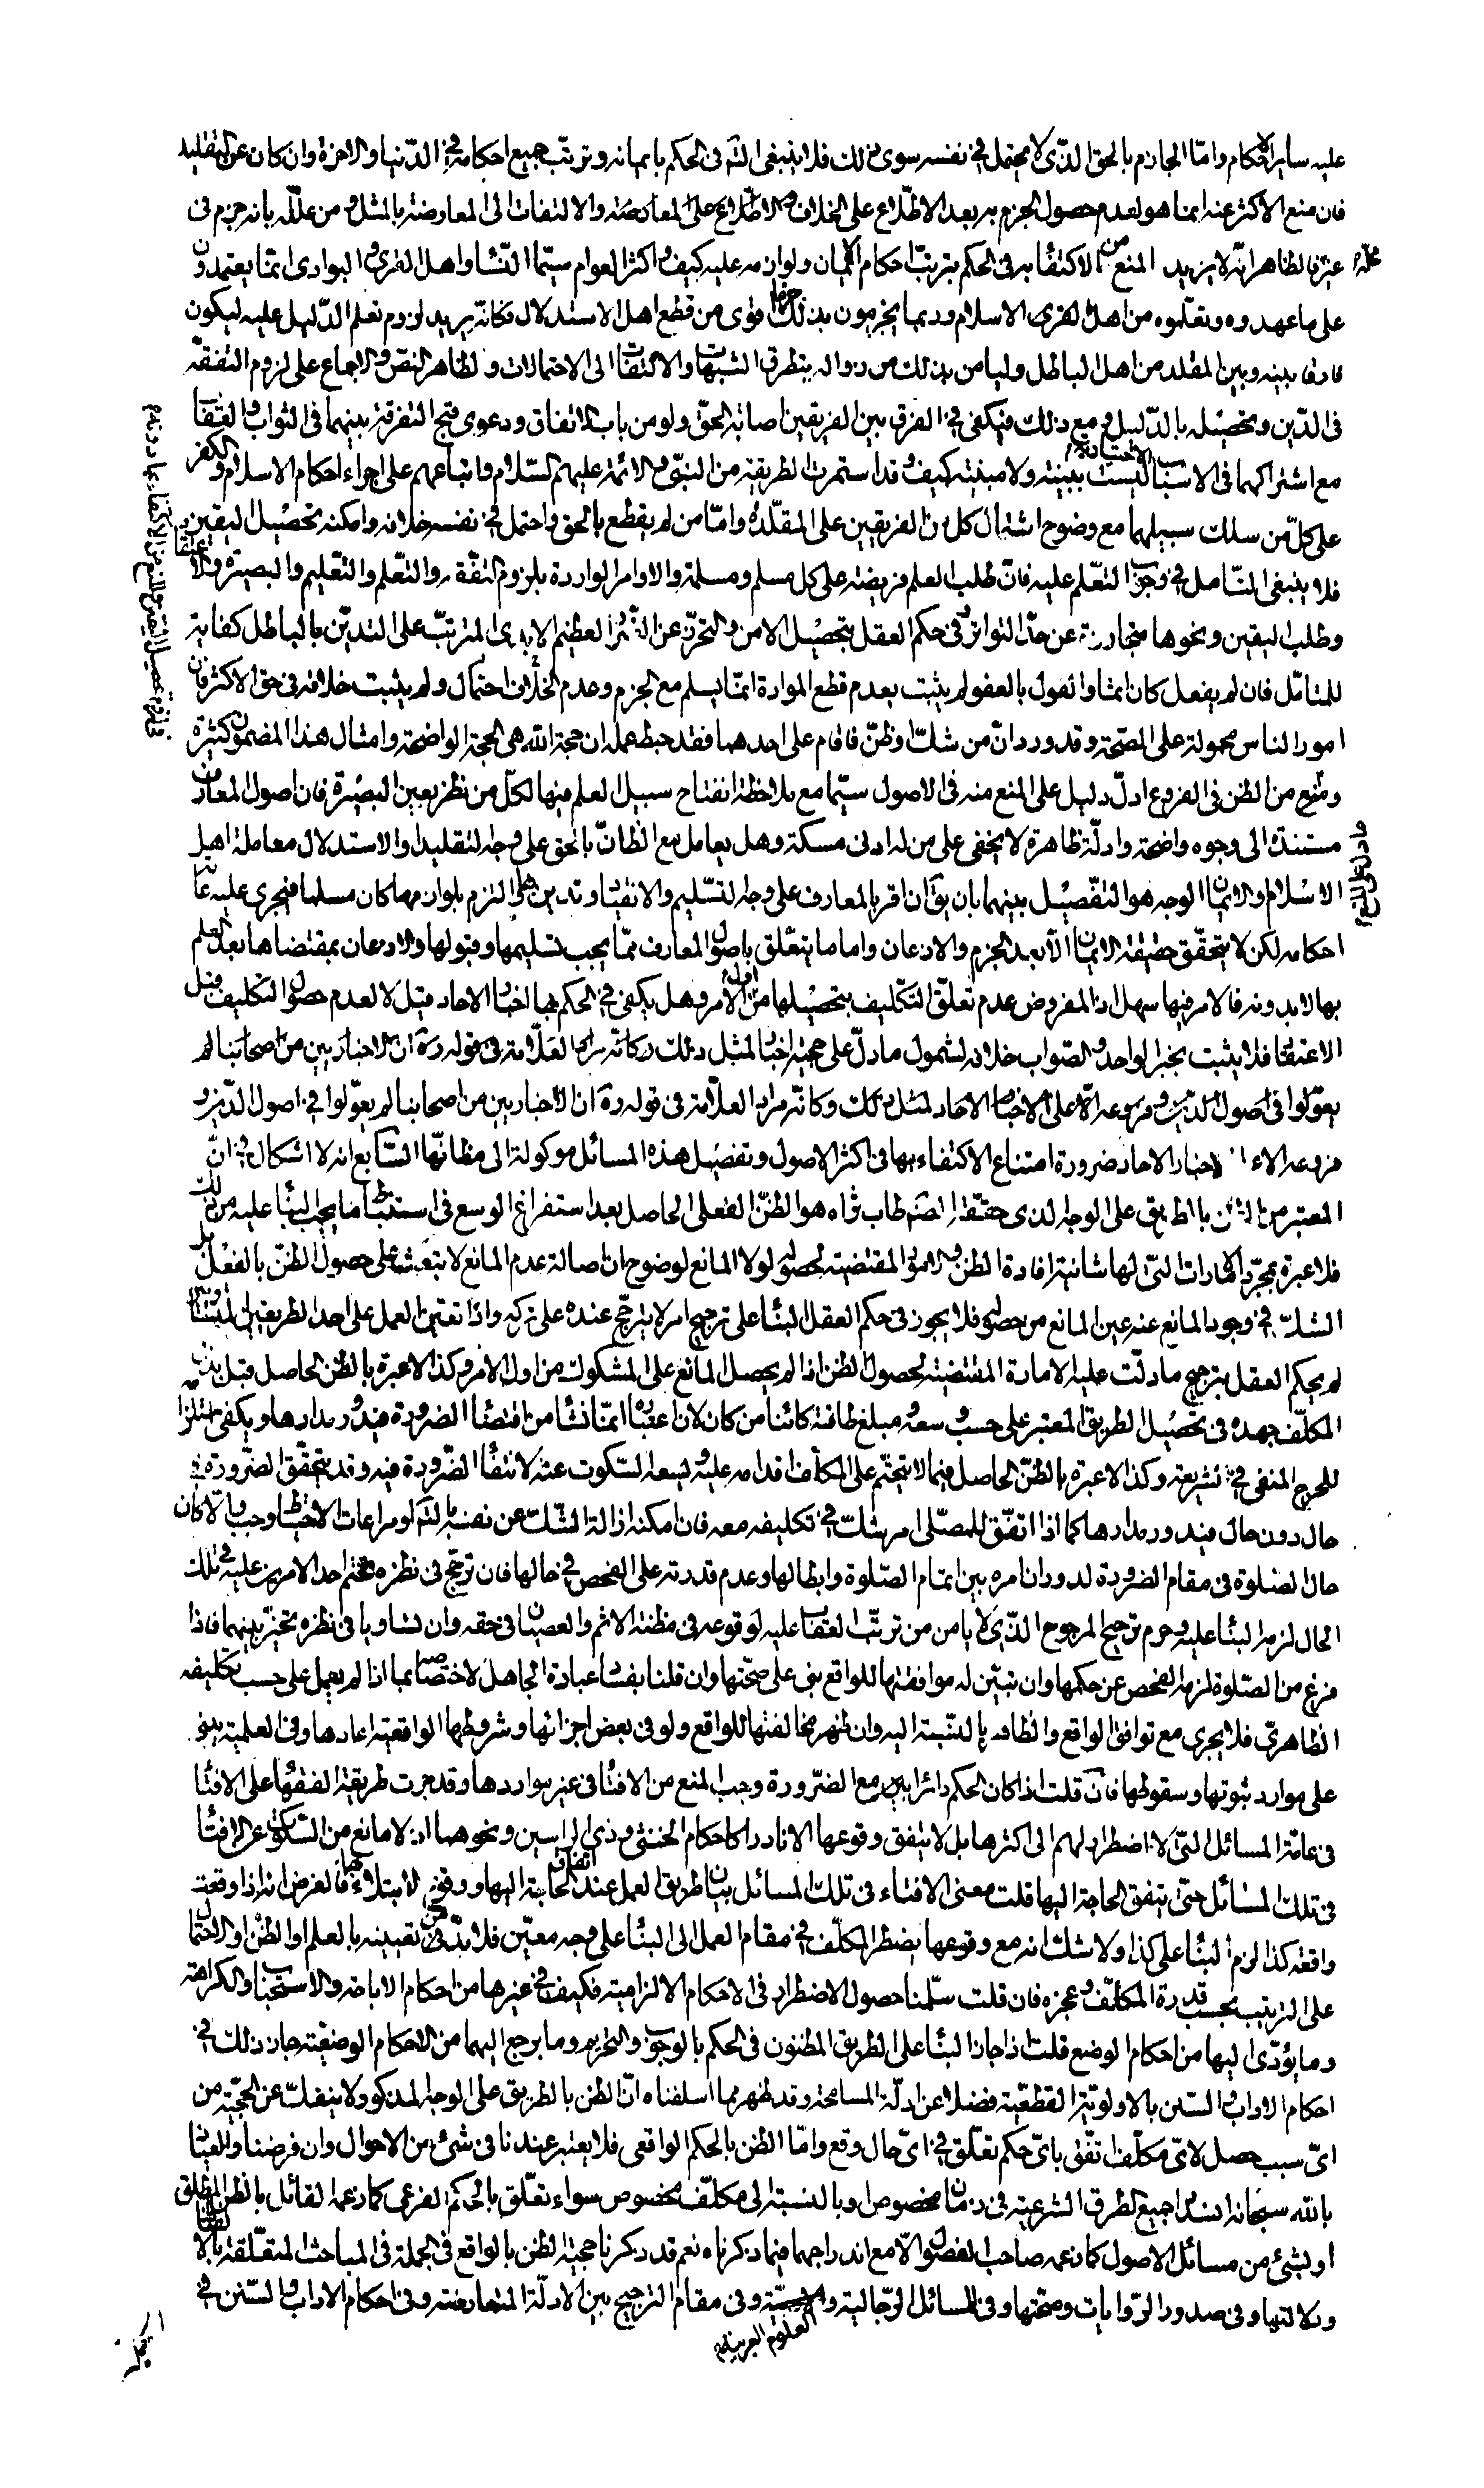 عليه ساير الاحكام وامّا الجازم بالحق الذّى لا يحتمل في نفسه سوى ذلك فلا ينبغى التّامل فى الحكم بايمانه وترتّب جميع احكامه في الدّنيا والاخرة وان كان عن التقليد
فان منع الاكثر عنه انما هو لعدم حصول الجزم به بعد الاطّلاع على الخلاف والاطلاع على المعارضة والالتفات الى المعارضة بالمثل ومن علّله بانه جزم فى
غير محلّه فالظاهر انّه لا يزيد المنع من الاكتفاء به فى الحكم بترتّب احكام الايمان ولوازمه عليه كيف واكثر العوام سيّما النّساء واهل القرى والبوادى انّما يعتمدون
على ما عهدوه وتعلّموه من اهل القرى الاسلام وربما يجزمون بذلك جزما اقوى من قطع اهل الاستدلال فكانّه يريد لزوم تعلم الدّليل عليه ليكون
فارقا بينه وبين المقلد من اهل الباطل وليامن بذلك من زواله بتطرق الشبهات والالتفات الى الاحتمالات والظاهر النصّ والاجماع على لزوم التفقّه
فى الدّين وتحصيله بالدّليل ومع ذلك فيكفى في الفرق بين الفريقين اصابة الحقّ ولو من باب الاتفاق ودعوى قبح التفرقة بينهما فى الثواب والعقاب
مع اشتراكهما فى الاسباب الاختيارية ليست ببينة ولا مبينة كيف وقد استمرت الطريقة من النبىّ والائمة عليهم السّلام واتباعهم على اجراء احكام الاسلام والكفر
على كلّ من سلك سبيلهما مع وضوح اشتمال كل من الفريقين على المقلّدة وامّا من لم يقطع بالحق واحتمل في نفسه خلافه وامكنه تحصيل اليقين
فلا ينبغى التّامل في وجوب التعّلم عليه فانّ طلب العلم فريضة على كل مسلم ومسلمة والاوامر الواردة بلزوم التفقّه والتعّلم والتعّليم والبصيرة والاعتقاد
وطلب اليقين ونحوها متجاوزة عن حدّ التواتر وفى حكم العقل بتحصيل الامن والتحرّز عن الضّرر العظيم الابدى المترتبّ على التديّن بالباطل كفاية
للمتامّل فان لم يفعل كان اثما والقول بالعفو لم يثبت بعدم قطع الموادة انمّا يسلم مع الجزم وعدم احتمال الخلاف ولم يثبت خلافه فى حق الاكثر فان
امور الناس محمولة على الصّحة وقد ورد انّ من شكّ او ظنّ فاقام على احدهما فقد حبط عمله ان حجة اللّه هى الحجة الواضحة وامثال هذا المضمون كثيرة
ومنع من الظن فى الفروع ادلّ دليل على المنع منه فى الاصول سيّما مع ملاحظة انفتاح سبيل العلم فيها لكلّ من نظر بعين البصيرة فان اصول المعارف
مستندة الى وجوه واضحة وادلّة ظاهرة لا يخفى على من له ادنى مسكة وهل يعامل مع الظانّ بالحق على وجه التقليد او الاستدلال معاملة اهل
الاسلام والايمان الوجه هو التفّصيل بينهما بان يقال ان اقر بالمعارف على وجه التسّليم والانقياد وتدين بها والتزم بلوازمها كان مسلما فيجرى عليه عامّة
احكامه لكن لا يتحقّق حقيقة الايمان الا بعد الجزم والاذعان واما ما يتعلّق باصول المعارف ممّا يجب تسليمها وقبولها والاذعان بمقتضاها بعد العلم
بها لا بدونه فالامر فيها سهل اذ المفروض عدم تعلّق التكّليف بتحصيلها من اول الامر وهل يكفى في الحكم بها اخبار الاحاد قيل لا لعدم حصول التكليف قبل
الاعتقاد فلا يثبت بخبر الواحد والصّواب خلافه لشمول ما دلّ على حجية اخبار لمثل ذلك وكانّه مراد العلّامة فى قوله ره ان الاخباريين من اصحابنا لم
يعوّلوا فى اصول الدّين وفروعه الّا على الاخبار الاحاد لمثل ذلك وكانّه مراد العلّامة فى قوله ره ان الاخباريين من اصحابنا لم يعوّلوا في اصول الدّين و
فروعه الا على اخبار الاحاد ضرورة امتناع الاكتفاء بها فى اكثر الاصول وتفصيل هذه المسائل موكولة الى مظانّها السّابع انه لا اشكال في انّ
المعتبر من الظن بالطريق على الوجه الذى حققّه المصّم طاب ثراه هو الظنّ الفعلى الحاصل بعد استفراغ الوسع فى استنباط ما يجب البناء عليه من ذلك
فلا عبرة بمجرّد الامارات التّى لها شانية افادة الظن والامور المقتضية لحصوله لولا المانع لوضوح ان اصالة عدم المانع لا تبعث على حصول الظنّ بالفعل بل
الشكّ في وجود المانع عنه عين المانع من حصوله فلا يجوز فى حكم العقل البناء على ترجيح امر لا يترجّح عنده على تركه واذا تعيّن العمل على احد الطريقين
لم يحكم العقل بترجيح ما دلّت عليه الامارة المقتضية لحصول الظن اذا لم يحصل المانع على المشكوك من اول الامر وكذا لا عبرة بالظن الحاصل قبل بذل
المكلّف جهده فى تحصيل الطريق المعتبر على حسب وسعه ومبلغ طاقته كائنا من كان لان اعتباره انمّا نشا من اقتضاء الضرورة فيدور مدارها ويكفى
للحرج المنفى في الشريعة وكذا لا عبرة بالظنّ الحاصل فيما لا يتحتّم على المكلف اقدامه عليه ويسعه السّكوت عنه لانتفاء الضّرورة فيه وقد يتحقّق الضّرورة في
حال دون حال فيدور مدارها كما اذا اتفّق للمصلّى امر شكّ في تكليفه معه فان امكنه ازالة الشّك عن نفسه او مراعات الاحتياط وجب والّا كان
حال الصّلوة فى مقام الضرورة لدوران امره بين اتمام الصّلوة وابطالها وعدم قدرته على الفحص في حالها فان ترجّح فى نظره تحتم احد الامرين عليه في تلك
الحال لزمه البناء عليه وحرم ترجيح المرجوح الذّى لا يامن من ترتّب العقاب عليه لوقوعه فى مظنة الاثم والعصيان فى حقه وان تساويا فى نظره تخيّر بينهما فاذا
فرغ من الصّلوة لزمه الفحص عن حكمها وان تبيّن له موافقتها للواقع بنى على صحّتها وان قلنا بفساد عبادة الجاهل لاختصاصها بما اذا لم يعمل على حسب تكليفه
الظاهرىّ فلا يجرى مع توافق الواقع والظاهر بالنسّبة اليه وان ظهر مخالفتها للواقع ولو فى بعض اجزائها وشروطها الواقعية اعادها وفى العلمية يبنى
على موارد ثبوتها وسقوطها فان قلت اذا كان الحكم دائرا مع الضرّورة وجب المنع من الافتاء فى غير مواردها وقد جرت طريقة الفقهاء على الافتاء
فى عامّة المسائل التّى لا اضطرار لهم الى اكثرها بل لا يتفق وقوعها الا نادرا كاحكام الخنثى وذى الراسين ونحوهما اذ لا مانع من السّكوت عن الافتاء
فى تلك المسائل حتىّ يتفق الحاجة اليها قلت معنى الافتاء فى تلك المسائل بيان طريق العمل عند اتفاق الحاجة اليها ووقوع الابتلاء بها فالغرض انه اذا وقعت
واقعة كذا لزم البناء على كذا ولا شك انه مع وقوعها يضطر المكلّف في مقام العمل الى البناء على وجه معيّن فلا بدّ من تعيينه بالعلم او الظّن او الاحتمال
على الترتيب بحسب قدرة المكلّف وعجزه فان قلت سلّمنا حصول الاضطرار فى الاحكام الالزامية فكيف في غيرها من احكام الاباحة والاستحباب والكراهة
وما يؤدّى اليها من احكام الوضع قلت اذا جاز البناء على الطريق المظنون فى الحكم بالوجوب والتحريم وما يرجع اليهما من الاحكام الوضعيّة جاز ذلك في
احكام الاداب والسّنن بالاولويّة القطعيّة فضلا عن ادلّة المسامحة وقد ظهر بما اسلفناه انّ الظن بالطريق على الوجه المذكور لا ينفكّ عن الحجّية من
اىّ سبب حصل لاىّ مكلّف اتفّق باىّ حكم تعلّق في اىّ حال وقع وامّا الظن بالحكم الواقعى فلا يعتبر عندنا فى شئ من الاحوال وان فرضنا والعياذ
بالله سبحانه انسداد جميع الطرق الشرعية فى زمان مخصوص او بالنسبة الى مكلّف مخصوص سواء تعلّق بالحكم الفرعى كما زعمه القائل بالظن المطلق
او بشئ من مسائل الاصول كما زعمه صاحب الفصول الّا مع اندراجهما فيما ذكرناه نعم قد ذكرنا حجية الظن بالواقع فى الجملة فى المباحث المتعلّقة بالالفاظ
ودلالتها وفى صدور الرّوايات وصحّتها وفى المسائل الرّجالية والعلوم العربية وفى مقام الترجيح بين الادلّة المتعارضة وفى احكام الاداب والسّنن في